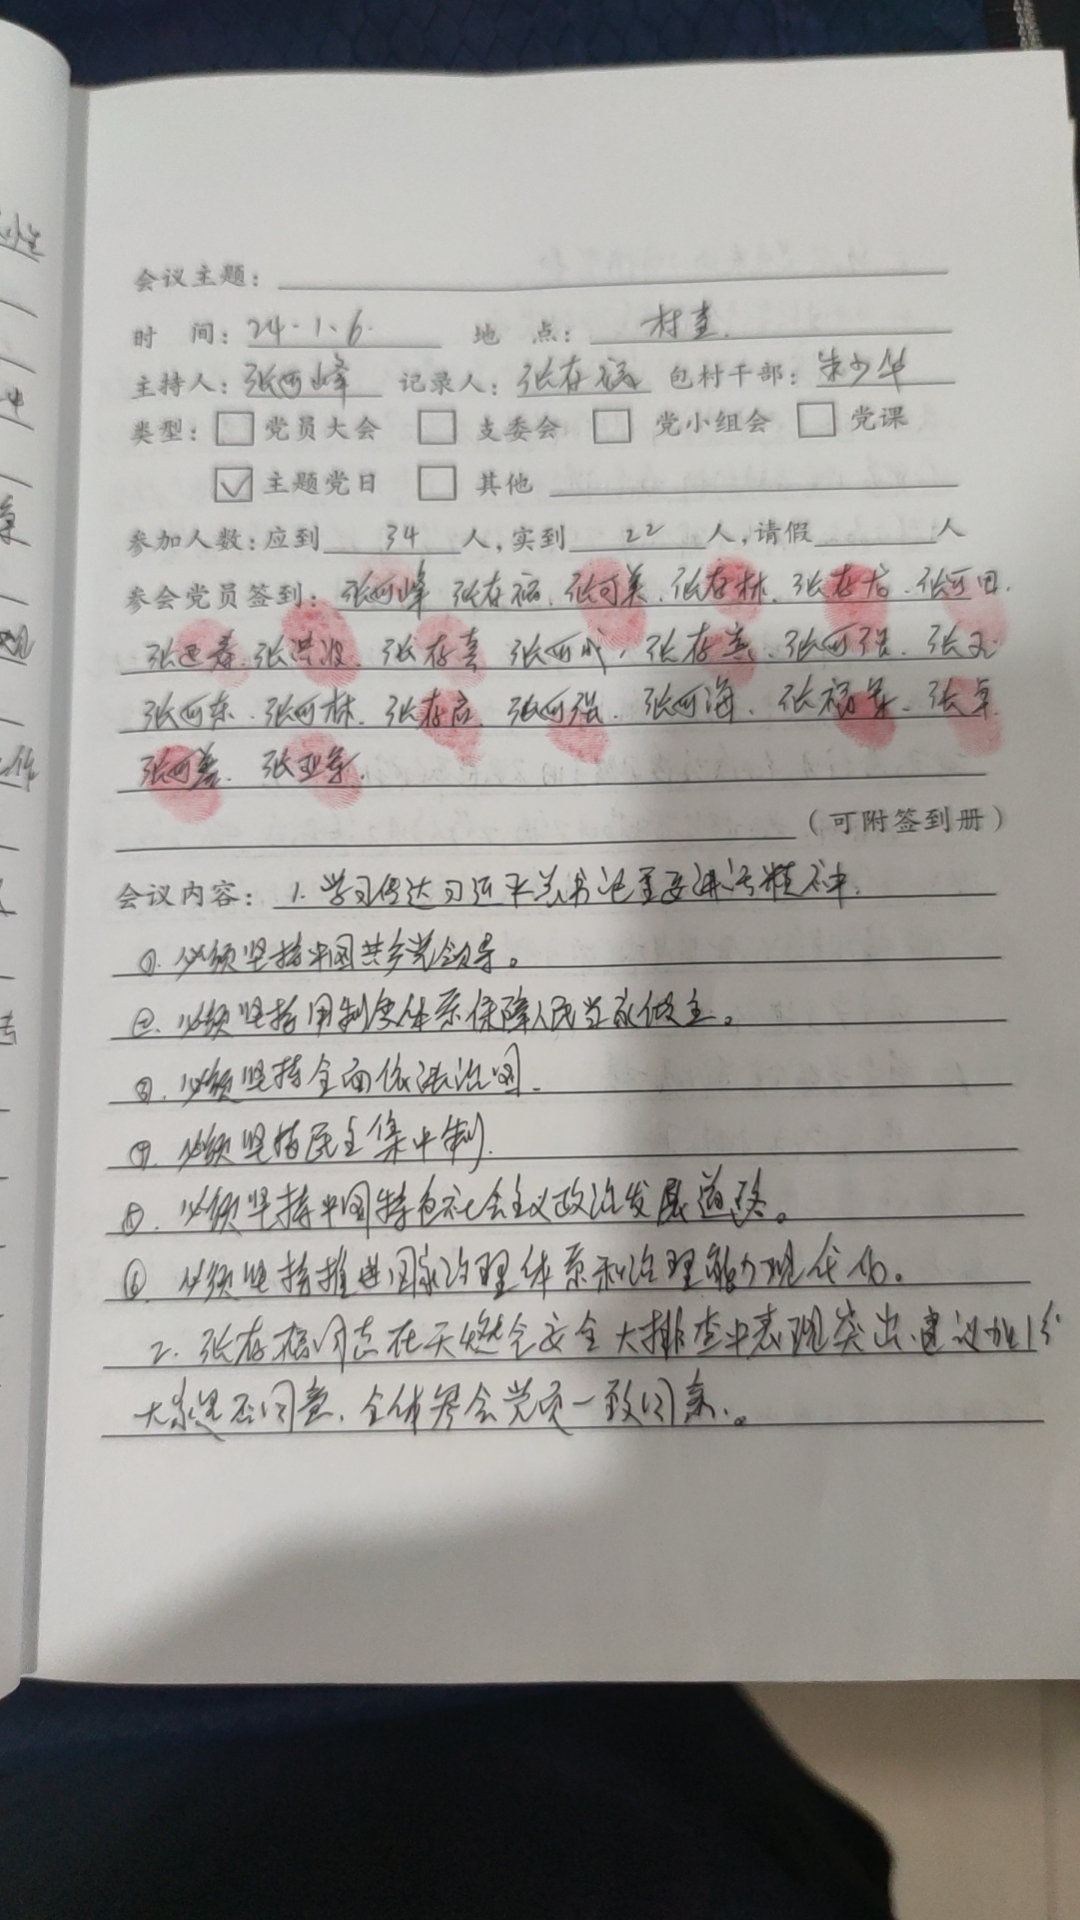 会议主题:
时 间: 24.1.6. 地 点: 村室.
主持人: 张西峰 记录人: 张存福 包村干部: 朱少华
类型: 党员大会 支委会 党小组会 党课
✓ 主题党日 其他
参加人数: 应到 34 人, 实到 22 人, 请假 人
参会党员签到: 张西峰 张存福. 张可美. 张存林. 张存启. 张可田.
张洪波. 张存真
张西东. 张西林. 张存启. 张西强. 张西海. 张福军. 张卓.
张亚军.
(可附签到册)
会议内容: 1. 学习传达习近平总书记重要讲话精神.
①. 必须坚持中国共产党领导。
②. 必须坚持用制度体系保障人民当家做主。
③. 必须坚持全面依法治国.
④. 必须坚持民主集中制.
⑤. 必须坚持中国特色社会主义政治发展道路。
⑥. 必须坚持推进国家治理体系和治理能力现代化。
2. 张存福同志在天燃气安全大排查中表现突出, 建议加1分
大家是否同意, 全体参会党员一致同意.。